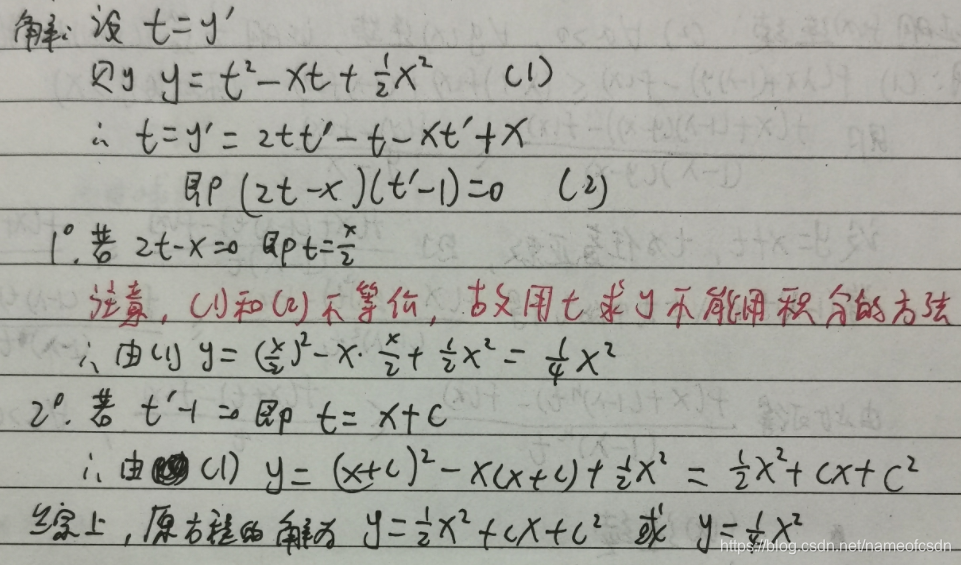 解: 设 t=y'
则 y=t²-xt+½x² (1)
∴ t=y'=2tt'-t-xt'+x
即 (2t-x)(t'-1)=0 (2)
1°. 若 2t-x=0 即 t=x/2
注意, (1)和(2)不等价, 故用t求y不能用积分的方法
∴ 由(1) y=(x/2)²-x·x/2+½x²=¼x²
2°. 若 t'-1=0 即 t=x+c
∴ 由 (1) y=(x+c)²-x(x+c)+½x²=½x²+cx+c²
综上, 原方程的解为 y=½x²+cx+c² 或 y=¼x²
https://blog.csdn.net/nameofcsdn